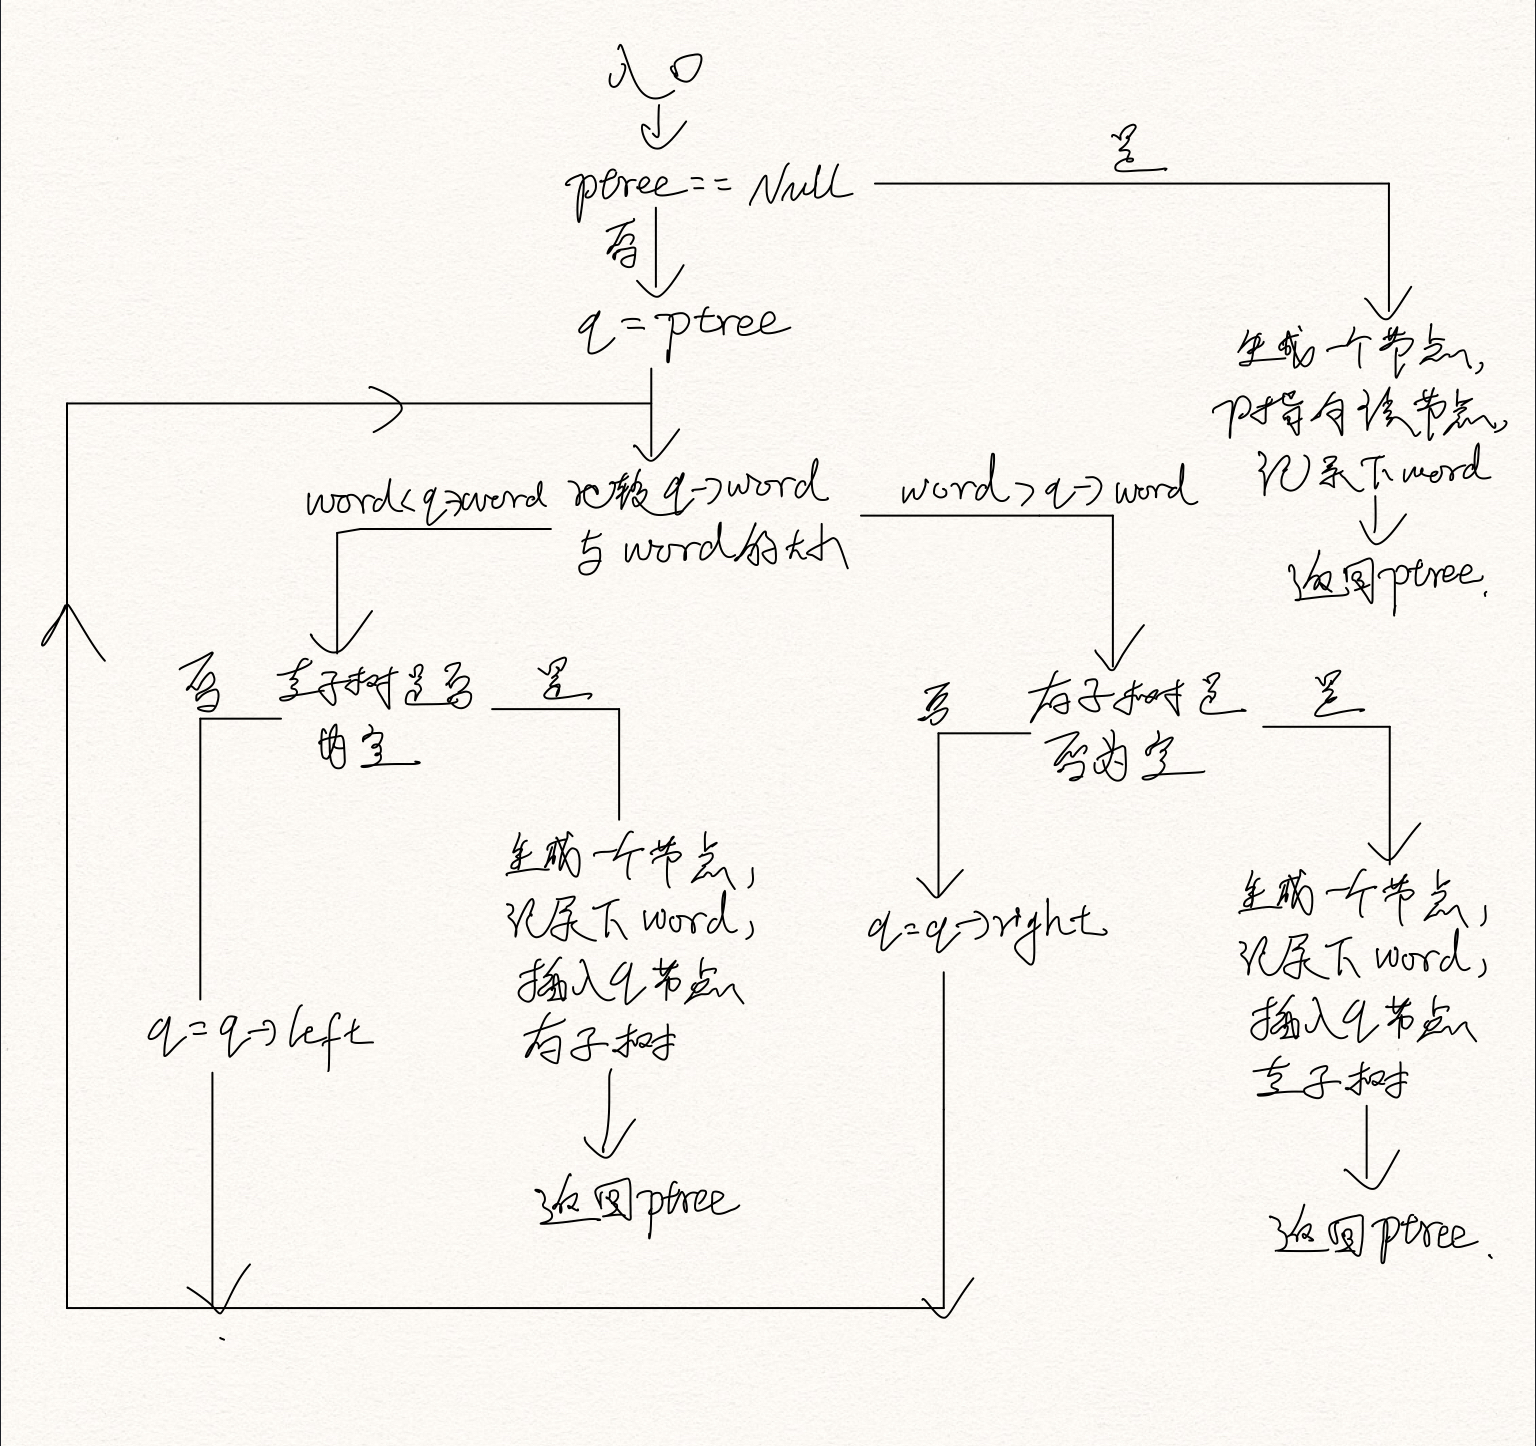 入口
是
ptree == Null
否
q = ptree
生成一个节点,
p指向该节点,
记录下word
返回ptree.
word<q->word
比较q->word
与word的大小
word>q->word
否
左子树是否
为空
是
否
右子树是
否为空
是
生成一个节点,
记录下word,
插入q节点
右子树
返回ptree
q=q->left
q=q->right
生成一个节点,
记录下word,
插入q节点
左子树
返回ptree.